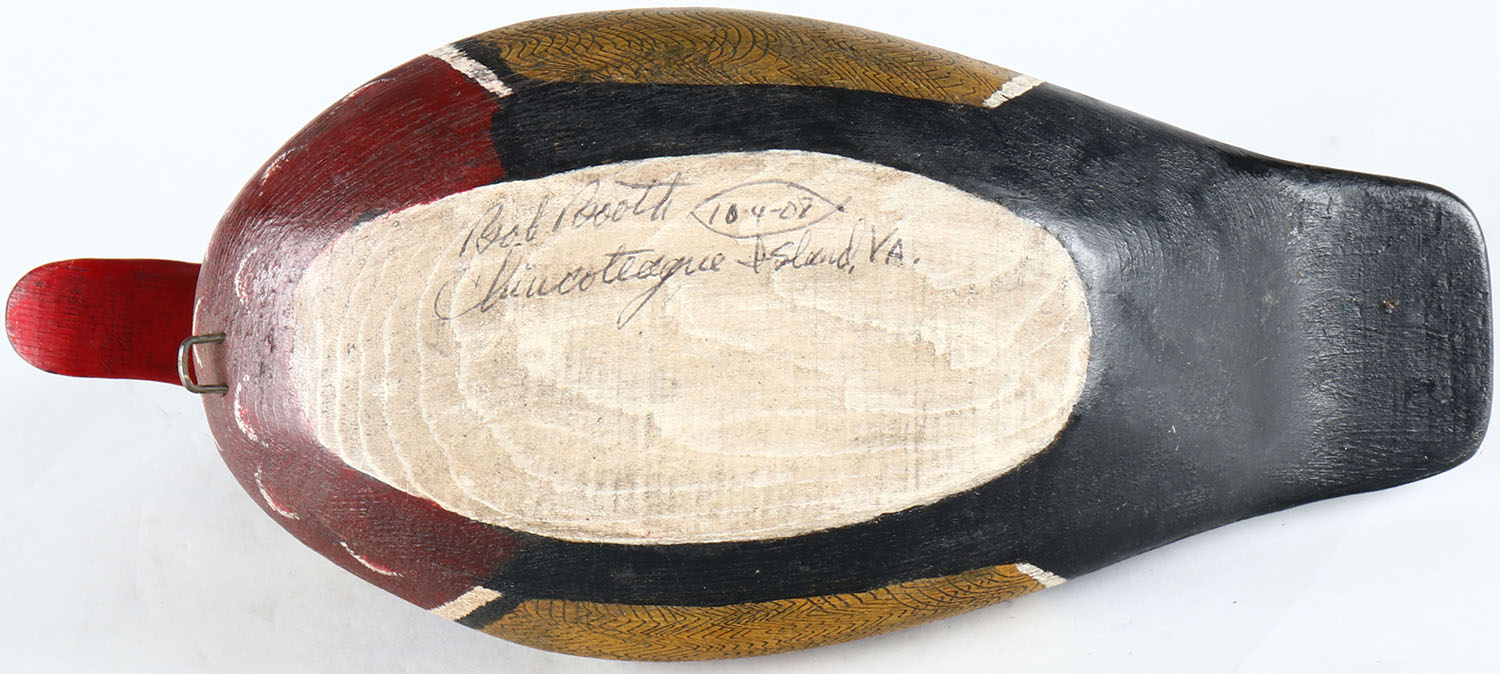 Bob Booth 10-4-08
Chincoteague Island, VA.